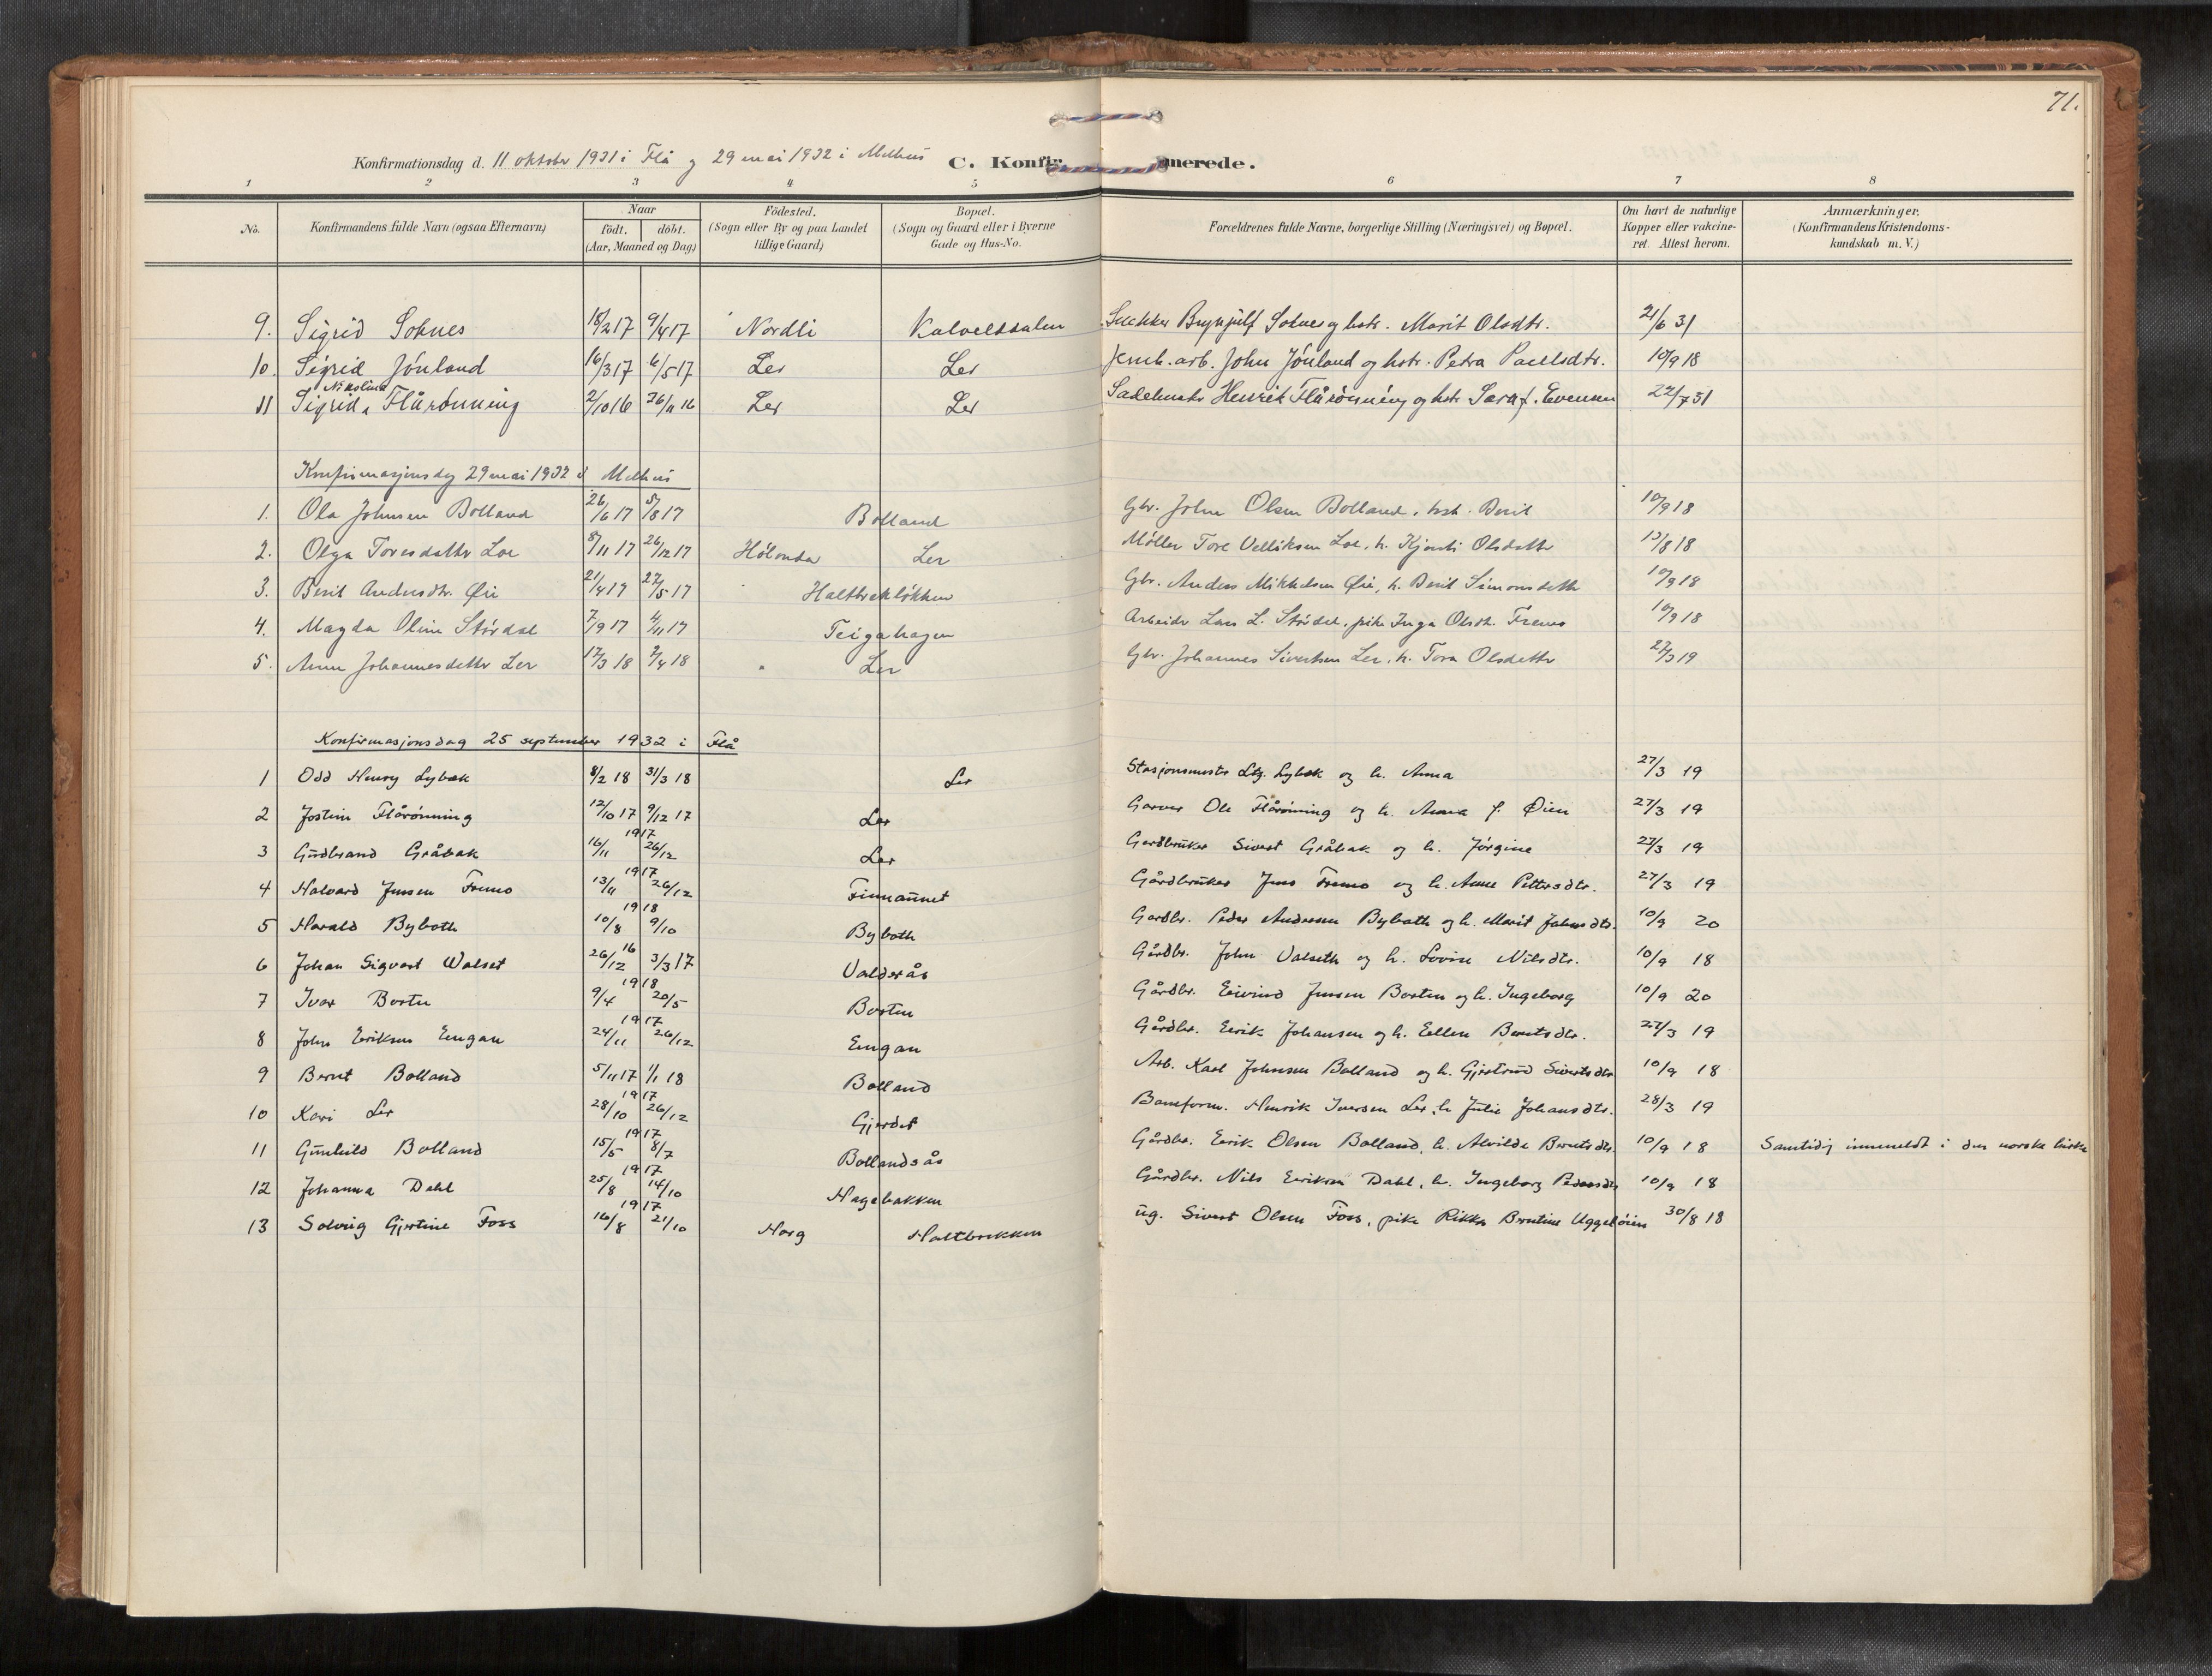 71.
Konfirmationsdag d. 11 oktober 1931 i Flå og 29 mai 1932 i Melhus C. Konfir merede.
1 2 3 4 5 6 7 8
No. Konfirmandens fulde Navn (ogsaa Efternavn) Naar født. døbt. (Aar, Maaned og Dag) Fødested. (Sogn eller By og paa Landet tillige Gaard) Bopæl. (Sogn og Gaard eller i Byerne Gade og Hus-No. Forældrenes fulde Navne, borgerlige Stilling (Næringsvei) og Bopæl. Om havt de naturlige Kopper eller vakcineret. Attest herom. Anmærkninger. (Konfirmandens Kristendomskundskab m. V.)
9. Sigrid Soknes 18/2 17 9/4 17 Nordli Brynjulf Soknes og hstr. Marit Olsdtr. 21/6 31
10. Sigrid Jönland 16/3 17 6/5 17 Ler Ler Jernb. arb. John Jönland og hstr. Petra Paulsdtr. 10/9 18
11 Sigrid Nikoline Flårönning 2/10 16 26/11 16 Ler Ler Sadelmaker Henrik Flårönning og hstr. Sara f. Evensen 22/7 31
Konfirmasjonsdag 29 mai 1932 i Melhus
1. Ola Johnsen Bolland 26/6 17 5/8 17 Bolland Gbr. John Olsen Bolland, hst. Berit 10/9 18
2. Olga Toresdatter Loe 8/11 17 26/12 17 Hölonda Ler Möller Tore Loe, h. Kjersti Olsdatter 13/8 18
3. Berit Andersdtr. Øie 21/4 17 27/5 17 " Haltbrekløkken Gbr. Anders Mikkelsen Øie, h. Berit Simonsdatter 10/9 18
4. Magda Oline Stördal 7/9 17 4/11 17 Teigahagen Arbeider Lars L. Stördal, pike Inga Olsdtr. Fremo 10/9 18
5. Anne Johannesdatter Ler 17/3 18 7/4 18 " Ler Gbr. Johannes Sivertsen Ler, h. Tora Olsdatter 27/3 19
Konfirmasjonsdag 25 september 1932 i Flå
1 Odd Henry Lybæk 8/2 18 31/3 18 Ler Stasjonsmester Lybæk og h. Anna 27/3 19
2 Jostein Flårönning 12/10 17 9/12 17 Ler Garver Ole Flårönning og h. Anna f. Øien 27/3 19
3 Gudbrand Gråbak 16/11 1917 26/12 Ler Gardbruker Sivert Gråbak og h. Jörgine 27/3 19
4 Halvard Jensen Fremo 13/11 1917 26/12 Finnaunet Gårdbruker Jens Fremo og h. Anne Pettersdtr. 27/3 19
5 Harald Byboth 10/8 1918 9/10 Byboth Gardbr. Peder Andersen Byboth og h. Marit Johnsdtr. 10/9 20
6 Johan Sigvart Valset 26/12 16 3/3 17 Valderås Gårdbr. John Valseth og h. Lovise Nilsdtr. 10/9 18
7 Ivar Borten 9/4 1918 20/5 Borten Gårdbr. Eivind Jensen Borten og h. Ingeborg 10/9 20
8 John Eriksen Engan 24/11 1917 26/12 Engan Gårdbr. Eirik Johansen og h. Ellen Berntsdtr. 27/3 19
9 Bernt Bolland 5/11 17 1/1 18 Bolland Arb. Karl Johnsen Bolland og h. Gjertrud Sivertsdtr 10/9 18
10 Kari Ler 28/10 1917 26/12 Gjerdet Baneform. Henrik Iversen Ler, h Julie Johansdtr. 28/3 19
11 Gunhild Bolland 15/5 1917 8/7 Bollandsås Gårdbr. Eirik Olsen Bolland, h. Alvilde Berntsdtr. 10/9 18 Samtidig innmeldt i den norske kirke
12 Johanna Dahl 25/8 1917 14/10 Hagebakken Gårdbr. Nils Eriksen Dahl, h. Ingeborg Pedersdtr 10/9 18
13 Solveig Gjertine Foss 16/8 1917 21/10 Horg Haltbrekken ug. Sivert Olsen Foss, pike Rikka Berntine Uggeløien 30/8 18